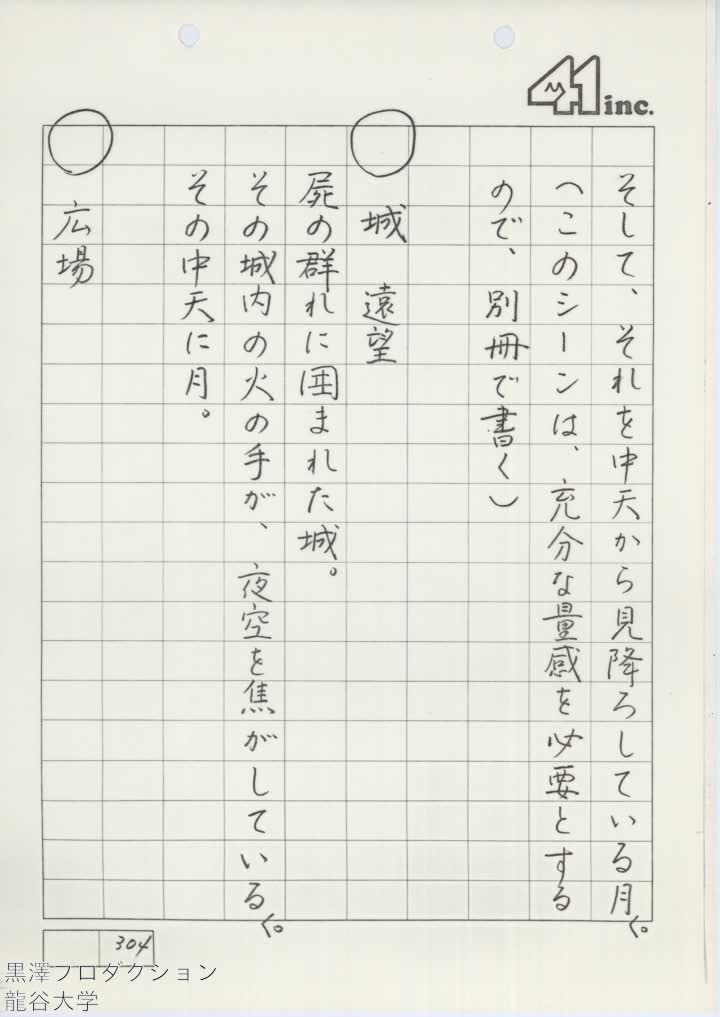 41 inc.
そして、それを中天から見降ろしている月。
(このシーンは、充分な量感を必要とする
ので、別冊で書く)
城 遠望
屍の群れに囲まれた城。
その城内の火の手が、夜空を焦がしている。
その中天に月。
広場
304
黒澤プロダクション
龍谷大学